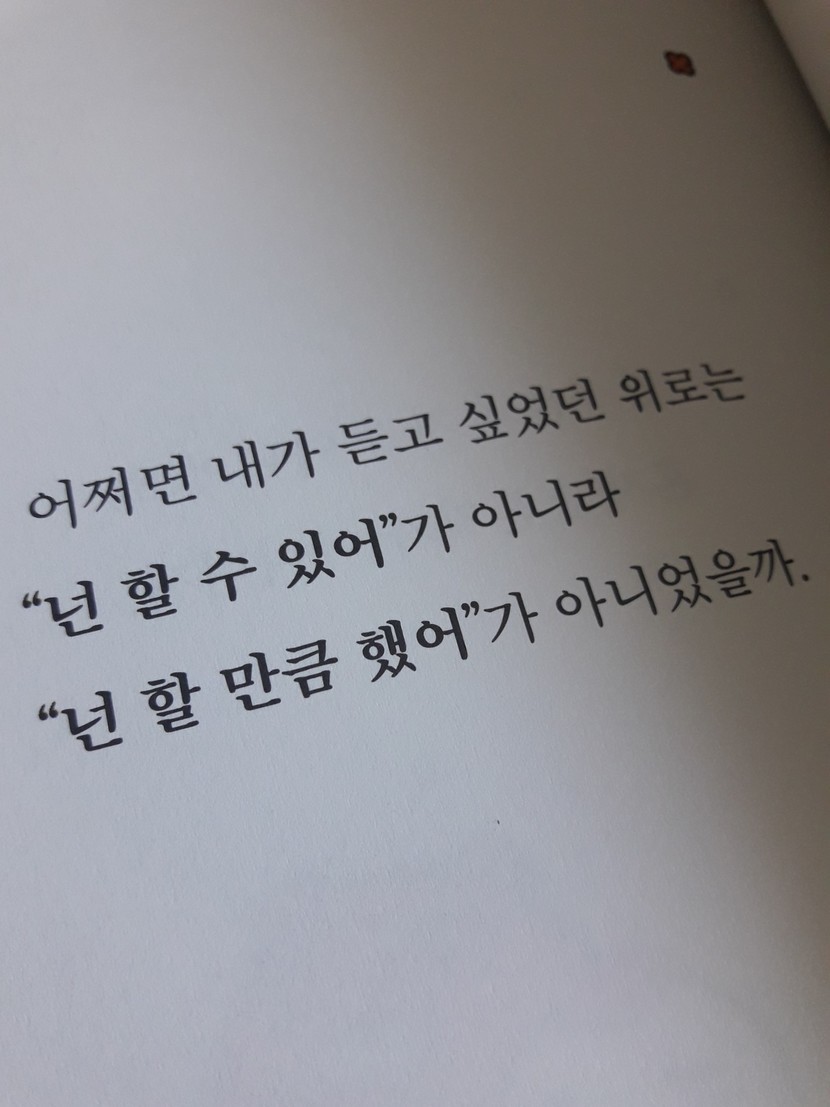 어쩌면 내가 듣고 싶었던 위로는
“넌 할 수 있어”가 아니라
“넌 할 만큼 했어”가 아니었을까.